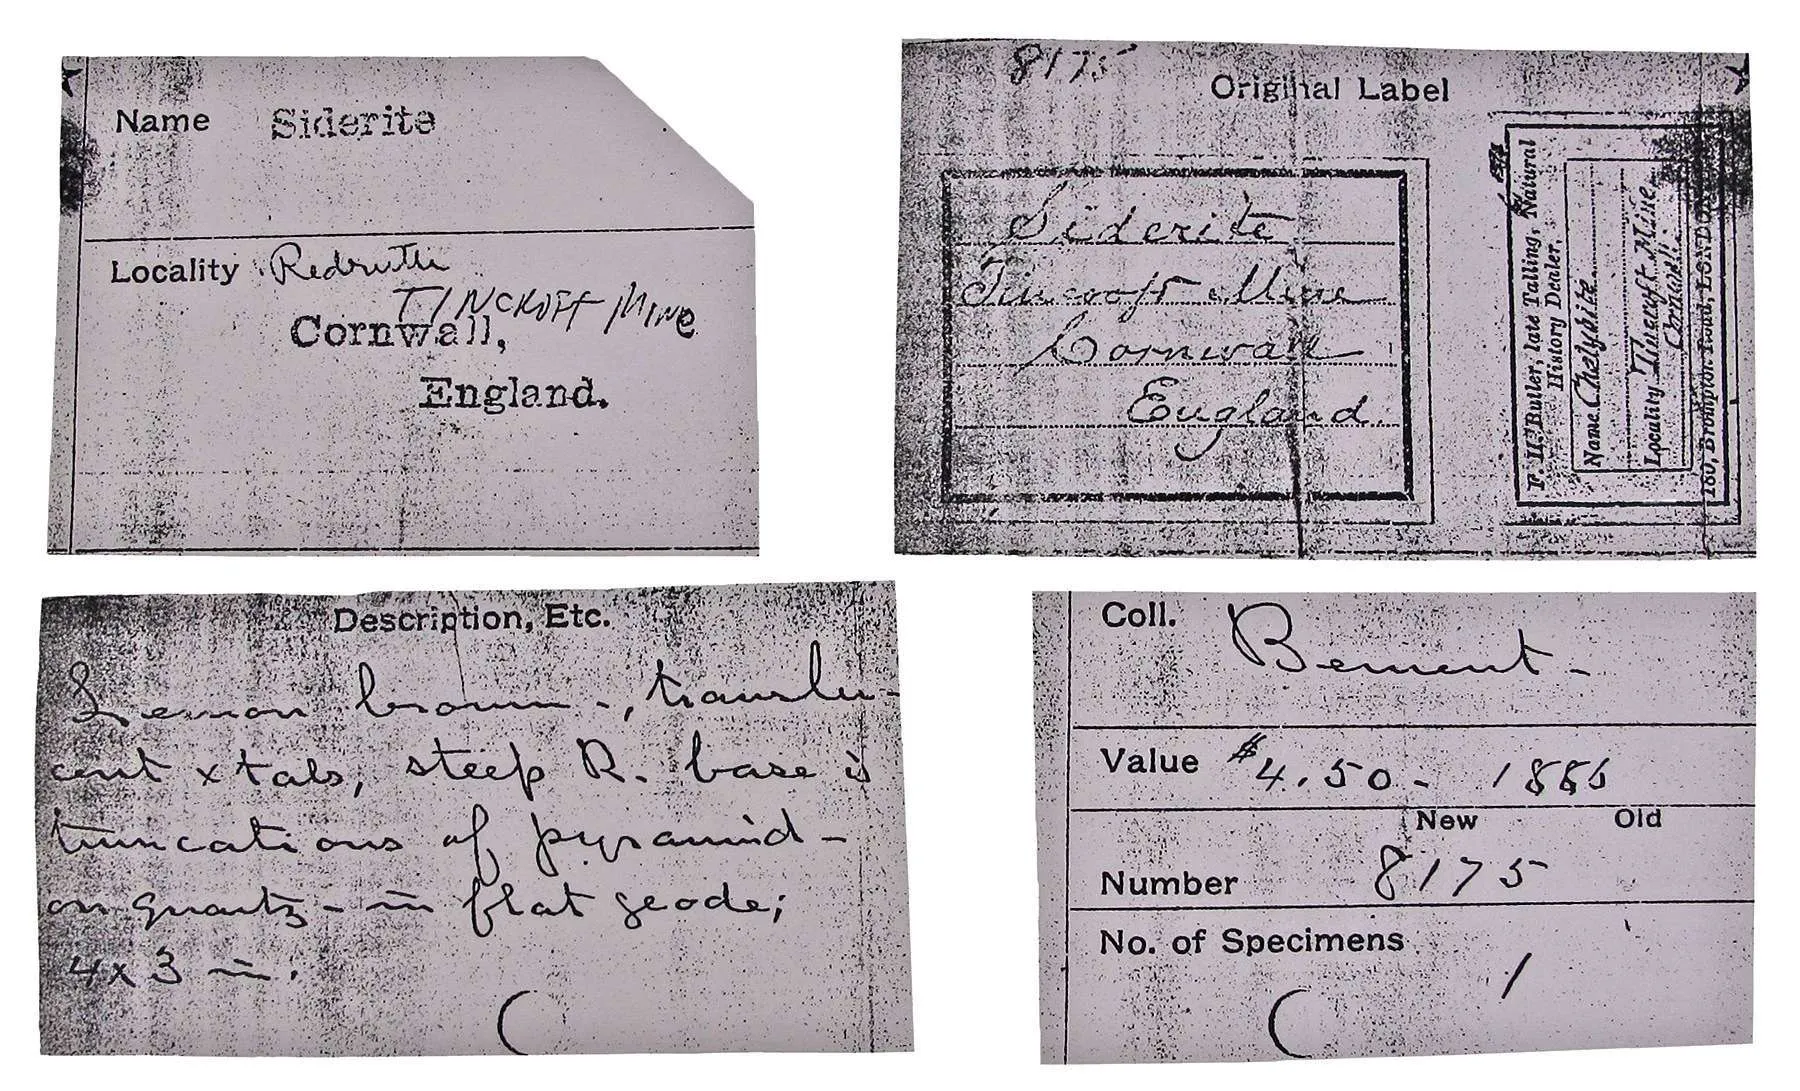 Name Siderite
Locality Redruth
TINCKOFF MINE
Cornwall,
England.
8175
Original Label
Siderite
Tincroft Mine
Cornwall
England.
F. H. Butler, late Talling, Natural
History Dealer.
Name Chalybite
Locality Tincroft Mine
Cornwall.
180, Brompton Road, LONDON
Description, Etc.
Lemon brown -, translu-
cent xtals, steep R. base is
truncations of pyramid -
on quartz - in flat geode;
4x3 in.
Coll. Bement -
Value $4.50 - 1885
New Old
Number 8175
No. of Specimens
1